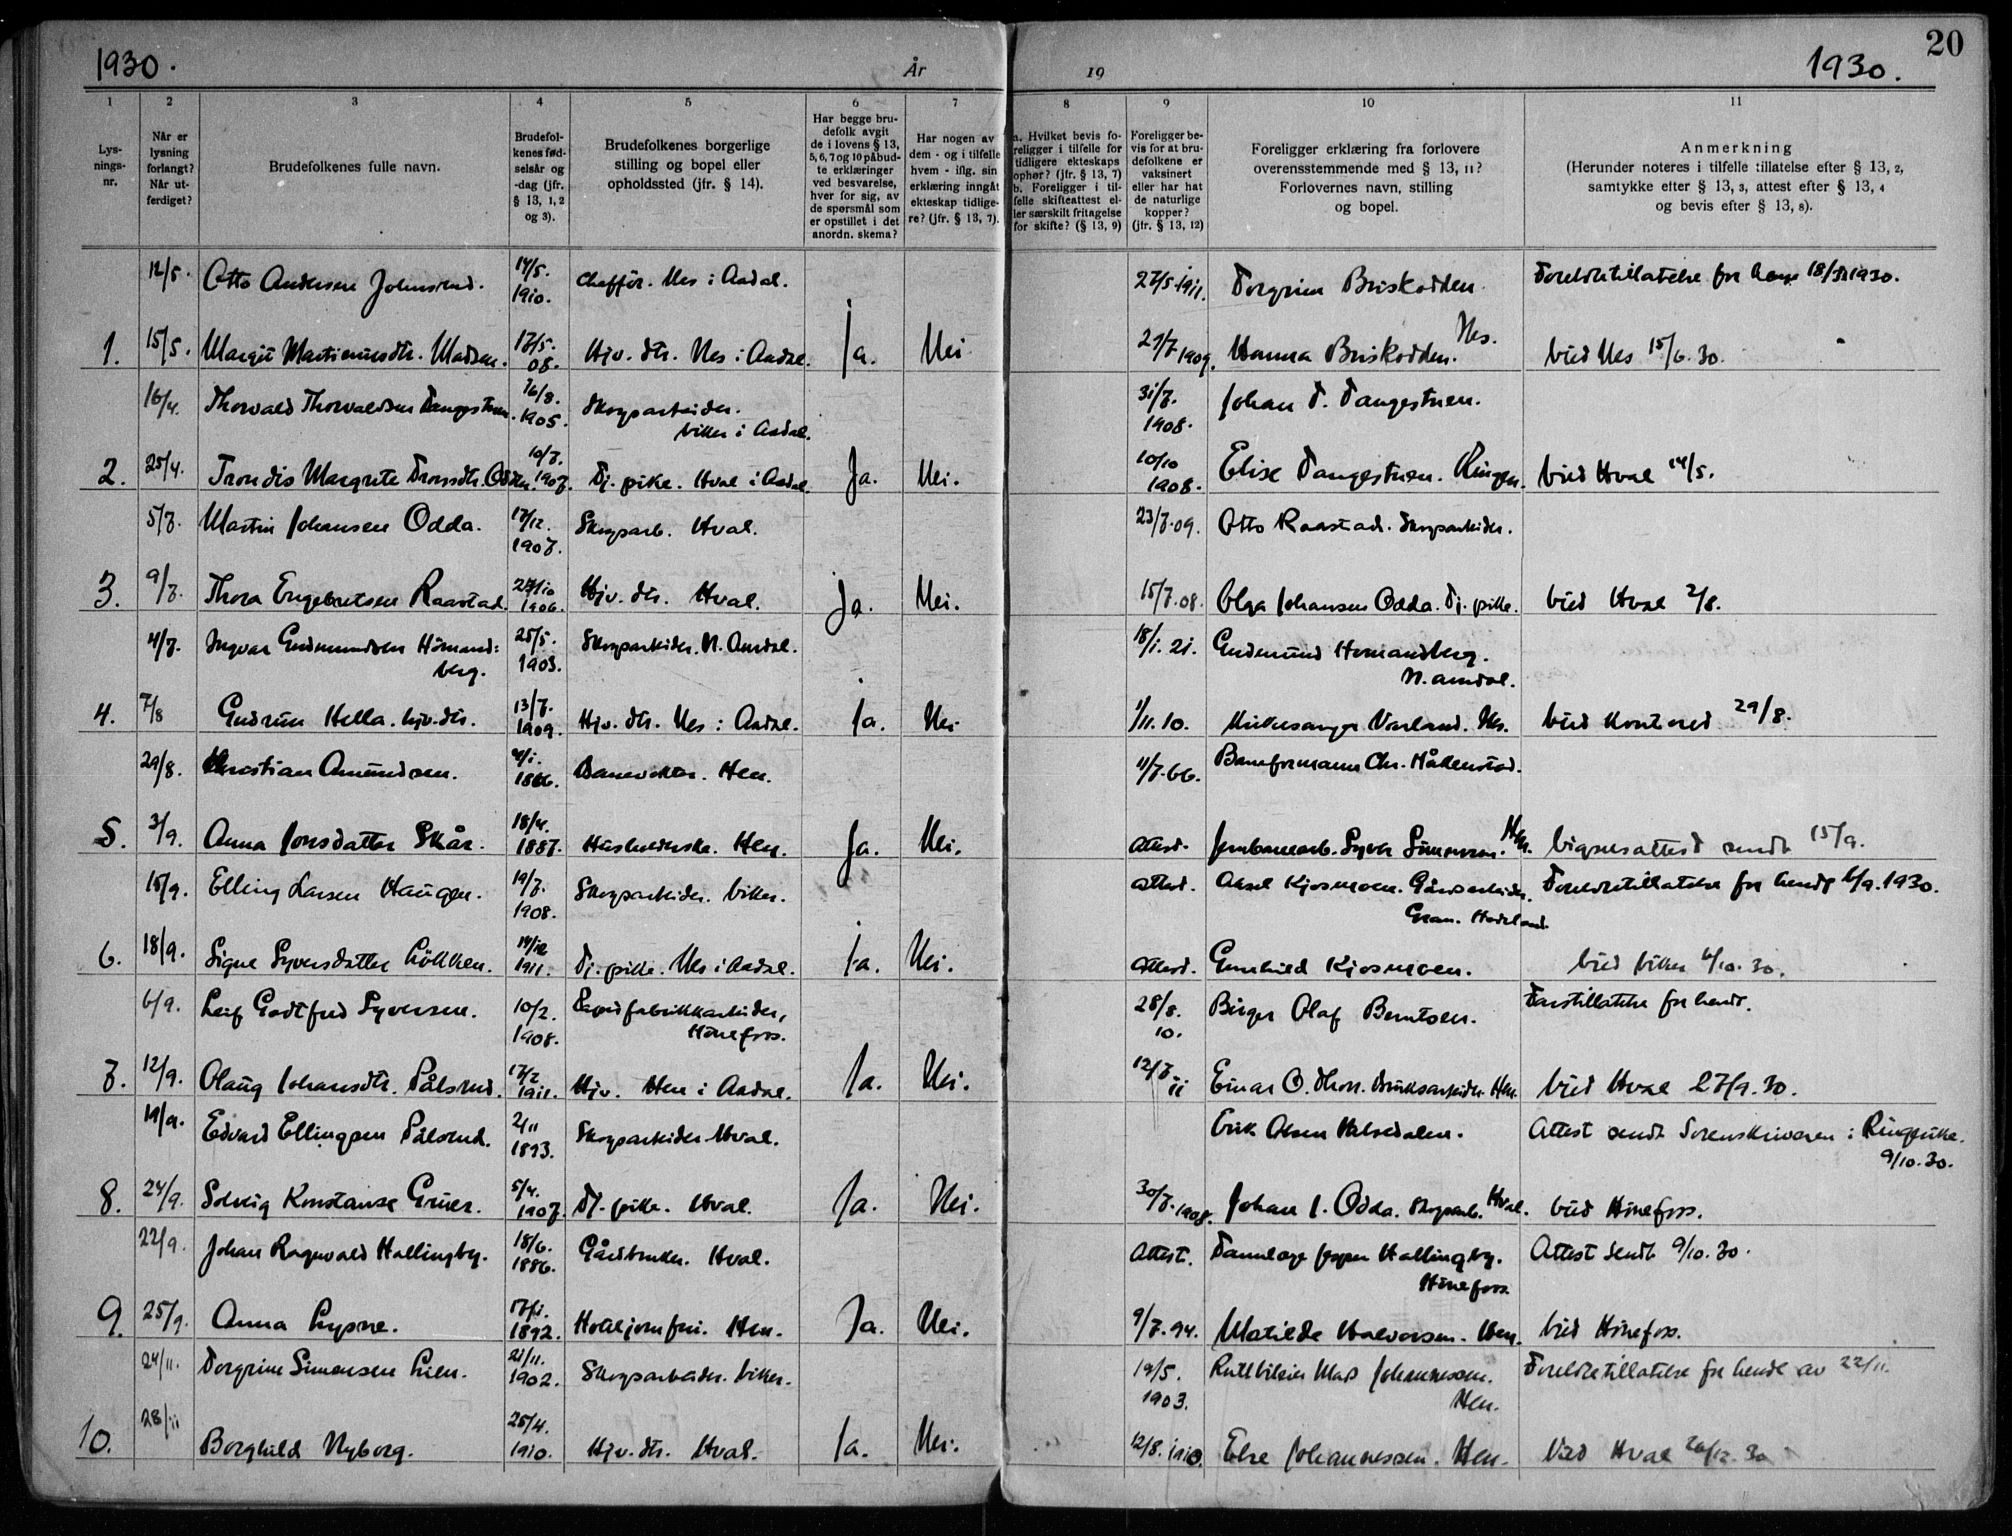 1930.
År
19
1930.
20
1
2
3
4
5
6
7
8
9
10
11
Lys-
nings-
nr.
Når er
lysning
forlangt?
Når ut-
ferdiget?
Brudefolkenes fulle navn.
Brudefol-
kenes fød-
selsår og
-dag (jfr.
§ 13, 1, 2
og 3).
Brudefolkenes borgerlige
stilling og bopel eller
opholdssted (jfr. § 14).
Har begge bru-
defolk avgit
de i lovens § 13,
5, 6, 7 og 10 påbud-
te erklæringer
ved besvarelse,
hver for sig, av
de spørsmål som
er opstillet i det
anordn. skema?
Har nogen av
dem - og i tilfelle
hvem - iflg. sin
erklæring inngått
ekteskap tidlige-
re? (jfr. § 13, 7).
a. Hvilket bevis fo-
religger i tilfelle for
tidligere ekteskaps
ophør? (jfr. § 13, 7)
b. Foreligger i til-
felle skifteattest el-
ler særskilt fritagelse
for skifte? (§ 13, 9)
Foreligger be-
vis for at bru-
defolkene er
vaksinert
eller har hat
de naturlige
kopper?
(jfr. § 13, 12)
Foreligger erklæring fra forlovere
overensstemmende med § 13, 11?
Forlovernes navn, stilling
og bopel.
Anmerkning
(Herunder noteres i tilfelle tillatelse efter § 13, 2,
samtykke efter § 13, 3, attest efter § 13, 4
og bevis efter § 13, 8).
12/5. Otto Andersen Johnsrud. 14/5. 1910. Chafför. Nes i Aadal. 27/5 1911. Torgrim Briskodden. Foreldretillatelse for 1930.
1. 15/5. Margit Martinusdtr. Madsen. 17/5. 08. Hjv. dtr. Nes i Aadal. Ja. Nei 29/7 1909. Hanna Briskodden. Nes. Vied Nes 15/6. 30.
16/4. Thorvald Thorvaldsen Tangestuen. 16/8. 1905. Skogsarbeider. Viker i Aadal. 31/7. 1908. Johan T. Tangestuen.
2. 25/4. Trondis Margrete Tronsdtr. 10/7. 1907. Tj. pike. Hval i Aadal. Ja. Nei. 10/10 1908. Elise Tangestuen. Ringer. Vied Hval 14/5.
5/7. Martin Johansen Odda. 17/12. 1907. Skogsarb. Hval. 23/7-09. Otto Raastad. Skogsarbeider.
3. 9/7. Thora Engebretsen Raastad. 1906. Hjv. dtr. Hval. Ja. Nei. 15/7-08. Olga Johansen Odda. Tj. pike. Vied Hval 2/8.
4/7. Ingvar Gudmundsen Hömand:
berg. 25/5. 1903. Skogsarbeider. N. Aurdal. 18/1. 21. Gudmund Homandberg. N. Aurdal.
4. 7/8 Gudrun Hella. hjv. dtr. 13/7. 1909. Hjv. dtr. Nes i Aadal. Ja. Nei 1/11. 10. Kirkesanger Varland. Nes. Vied 29/8.
29/8. Kristian Amundsen. 1866. Banevokter. Hen. 11/7-66. Baneformann Chr. Håkenstad.
5. 3/9. Anna Jonsdatter Skår. 18/4. 1887. Husholderske. Hen. Ja. Nei. Attest. Jernbanearb. Syver Simensen. Hen. Vigselsattest sendt 15/9.
15/9. Elling Larsen Haugen. 19/7. 1908. Skogsarbeider. Viker. Attest. Aksel Kjosmoen. Gårdsarbeider.
Gran. Hadeland. Foreldretillatelse for hende 6/9. 1930.
6. 18/9. Signe Syversdatter Lökken. 14/12 1911. Tj. pike. Nes i Aadal. Ja. Nei. Attest. Gunhild Kjosmoen. Vied Viker 6/10. 30.
6/9. Leif Godtfred Syversen. 10/2. 1908. fabrikkarbeider,
Hönefoss. 28/8. 10. Birger Olaf Berntsen. Farstillatelse for hende.
7. 12/9. Olaug Johansdtr. Pålsrud. 17/2 1911. Hjv. Hen i Aadal. Ja. Nei. 12/7 11 Einar O. Bruksarbeider Hen. Vied Hval 27/9. 30.
19/9. Edvard Ellingsen Pålsrud. 2/11 1893. Skogsarbeider Hval. Erik Olsen Halvedalen. Attest sendt Sorenskriveren i Ringerike.
9/10. 30.
8. 24/9. Solveig Konstanse Gruer. 5/4. 1907. Tj. pike. Hval. Ja. Nei. 30/7. 1908. Johan J. Odda. Skogsarb. Hval. Vied Hönefoss.
22/9. Johan Ragnvald Hallingby. 18/6. 1886. Gårdbruker. Hval. Attest. Tannlæge Jesper Hallingby.
Hönefoss Attest sendt 9/10. 30.
9. 25/9. Anna Lysne. 17/1. 1892. Hotelljomfru. Hen. Ja. Nei. 9/7. 94. Matilde Halvorsen. Hen. Vied Hönefoss.
24/11. Torgrim Simensen Lien. 21/11. 1902. Skogsarbeider. Viker. 19/5. 1903. Rutebileier Mads Johannessen.
Hen. Foreldretillatelse for hende av 22/11.
10. 28/11 Borghild Nyborg. 25/4. 1910. Hjv. dtr. Hval. Ja. Nei. 12/8. 1910. Else Johannessen. Hen. Vied Hval 26/12. 30